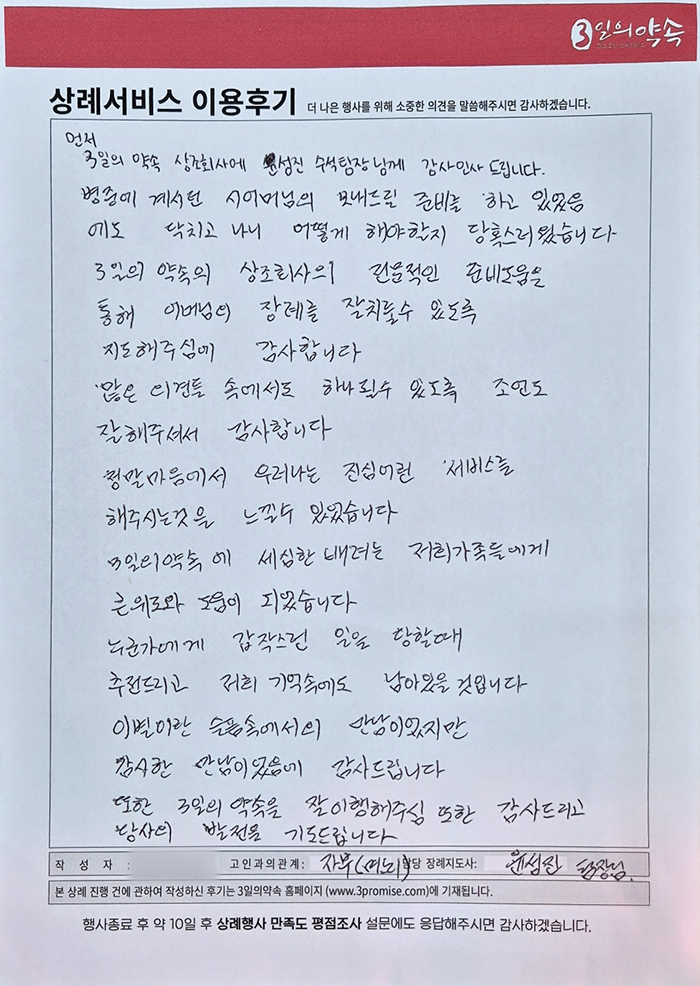 3일의약속
상례서비스 이용후기 더 나은 행사를 위해 소중한 의견을 말씀해주시면 감사하겠습니다.
먼저
3일의 약속 상조회사에 윤섬진 수석팀장님께 감사인사 드립니다.
병중에 계시던 시어머님의 보내드릴 준비를 하고 있었음
에도 닥치고 나니 어떻게 해야할지 당혹스러웠습니다
3일의 약속의 상조회사의 전문적인 준비도움을
통해 어머님의 장례를 잘치룰수 있도록
지도해주심에 감사합니다
많은 의견들 속에서도 하나될수 있도록 조언도
잘해주셔서 감사합니다
정말마음에서 우러나는 진심어린 서비스를
해주시는것을 느낄수 있었습니다
3일의약속에 세심한 배려는 저희가족들에게
큰위로와 도움이 되었습니다
누군가에게 갑작스런 일을 당할때
추천드리고 저희 기억속에도 남아있을것입니다
이별이란 슬픔속에서의 만남이었지만
감사한 만남이었음에 감사드립니다
또한 3일의약속을 잘이행해주심 또한 감사드리고
당사의 발전을 기도드립니다
작 성 자 : 고인과의관계 : 자부(며느리) 담당 장례지도사: 윤섬진 팀장님.
본 상례 진행 건에 관하여 작성하신 후기는 3일의약속 홈페이지 (www.3promise.com)에 기재됩니다.
행사종료 후 약 10일 후 상례행사 만족도 평점조사 설문에도 응답해주시면 감사하겠습니다.